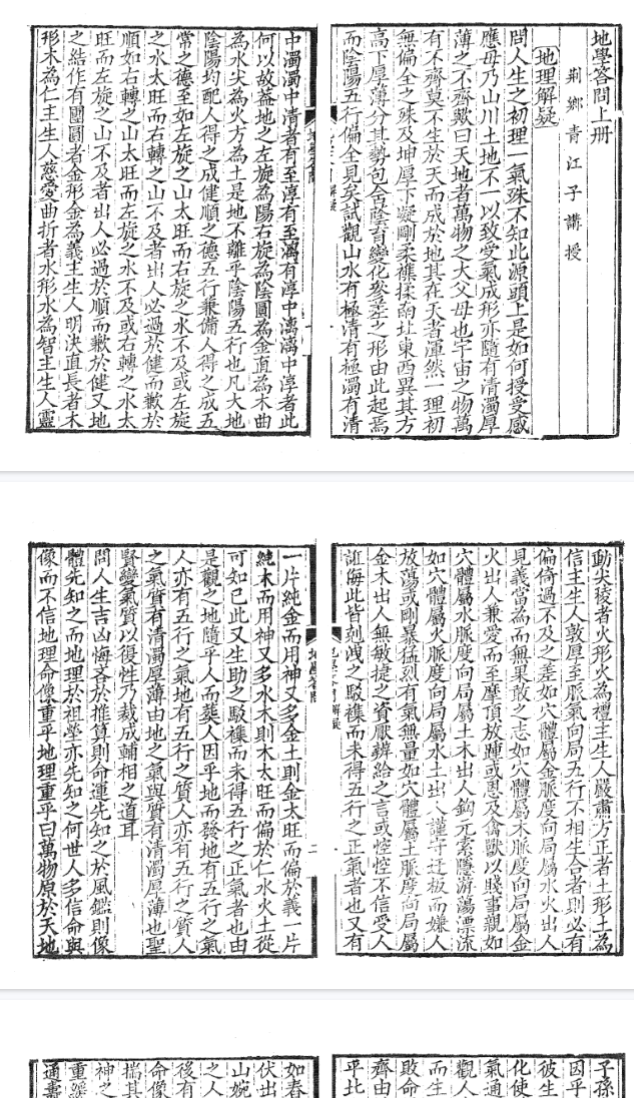 地學答問上册
荆鄉青江子講授
地理解疑
問人生之初理一氣殊不知此源頭上是如何授受感
應毋乃山川土地不一以致受氣成形亦隨有清濁厚
薄之不齊歟曰天地者萬物之大父母也宇宙之物萬
有不齊莫不生於天而成於地其在天者渾然一理初
無偏全之殊及坤厚下凝剛柔襍揉址東西異其方
高下厚薄分其勢包含蔭育變化參差之形由此起焉
而陰陽五行偏全見矣試觀山水有極清有極濁有清
中濁濁中清者有至淳有至漓有淳中漓漓中淳者此
何以故葢地之左旋為陽右旋為陰圓為金直為木曲
為水尖為火方為土是地不離乎陰陽五行也凡大地
陰陽均配人得之成健順之德五行兼備人得之成五
常之德至如左旋之山太旺而右旋之水不及或左旋
之水太旺而右轉之山不及者出人必過於健而歉於
順如右轉之山太旺而左旋之水不及或右轉之水太
旺而左旋之山不及者出人必過於順而歉於健又地
之結作有團圓者金形金為義主生人明決直長者木
形木為仁主生人慈愛曲折者水形水為智主生人靈
動尖稜者火形火為禮主生人嚴肅方正者土形土為
信主生人敦厚至脈氣向局五行不相生合者則必有
偏倚過不及之差如穴體屬金脈度向局屬水火出人
見義當為而無果敢之志如穴體屬木脈度向局屬金
火出人兼愛而至摩頂放踵或恩及禽獸以賤事親如
穴體屬水脈度向局屬土木出人鉤元索隱游蕩漂流
如穴體屬火脈度向局屬水土出人謹守迂板而嫌人
放蕩或剛暴猛烈有氣無量如穴體屬土脈度向局屬
金木出人無敏捷之資厭辯給之言或悾悾不信受人
誆侮此皆剋洩之駁襍而未得五行之正氣者也又有
一片純金而用神又多金土則金太旺而偏於義一片
純木而用神又多水木則木太旺而偏於仁水火土從
可知已此又生助之駁襍而未得五行之正氣者也由
是觀之地隨乎人而葬人因乎地而發地有五行之氣
人亦有五行之氣地有五行之質人亦有五行之質人
之氣質有清濁厚薄由地之氣與質有清濁厚薄也聖
賢變氣質以復性乃裁成輔相之道耳
問人生吉凶悔吝於推算則命運先知之於風鑑則像
體先知之而地理於祖塋亦先知之何世人多信命與
像而不信地理命像重乎地理重乎曰萬物原於天地
子孫
因乎
彼生
化使
氣通
觀人
而生
敗命
齊由
平比
如春
伏出
山婉
之人
後有
命像
揣其
神之
重
通壽